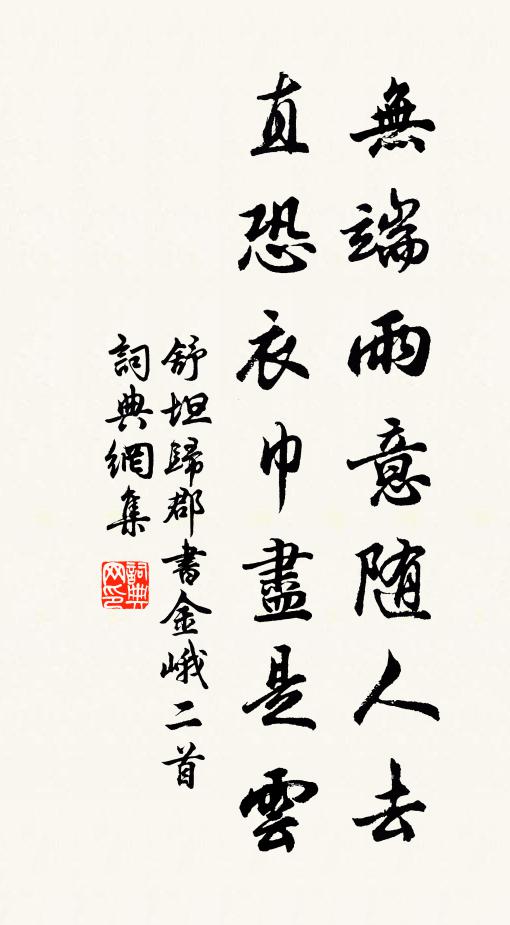 無端雨意随人去
直恐衣巾盡是雲
舒坦歸郡書金峨二首
詞典網集
詞典网印